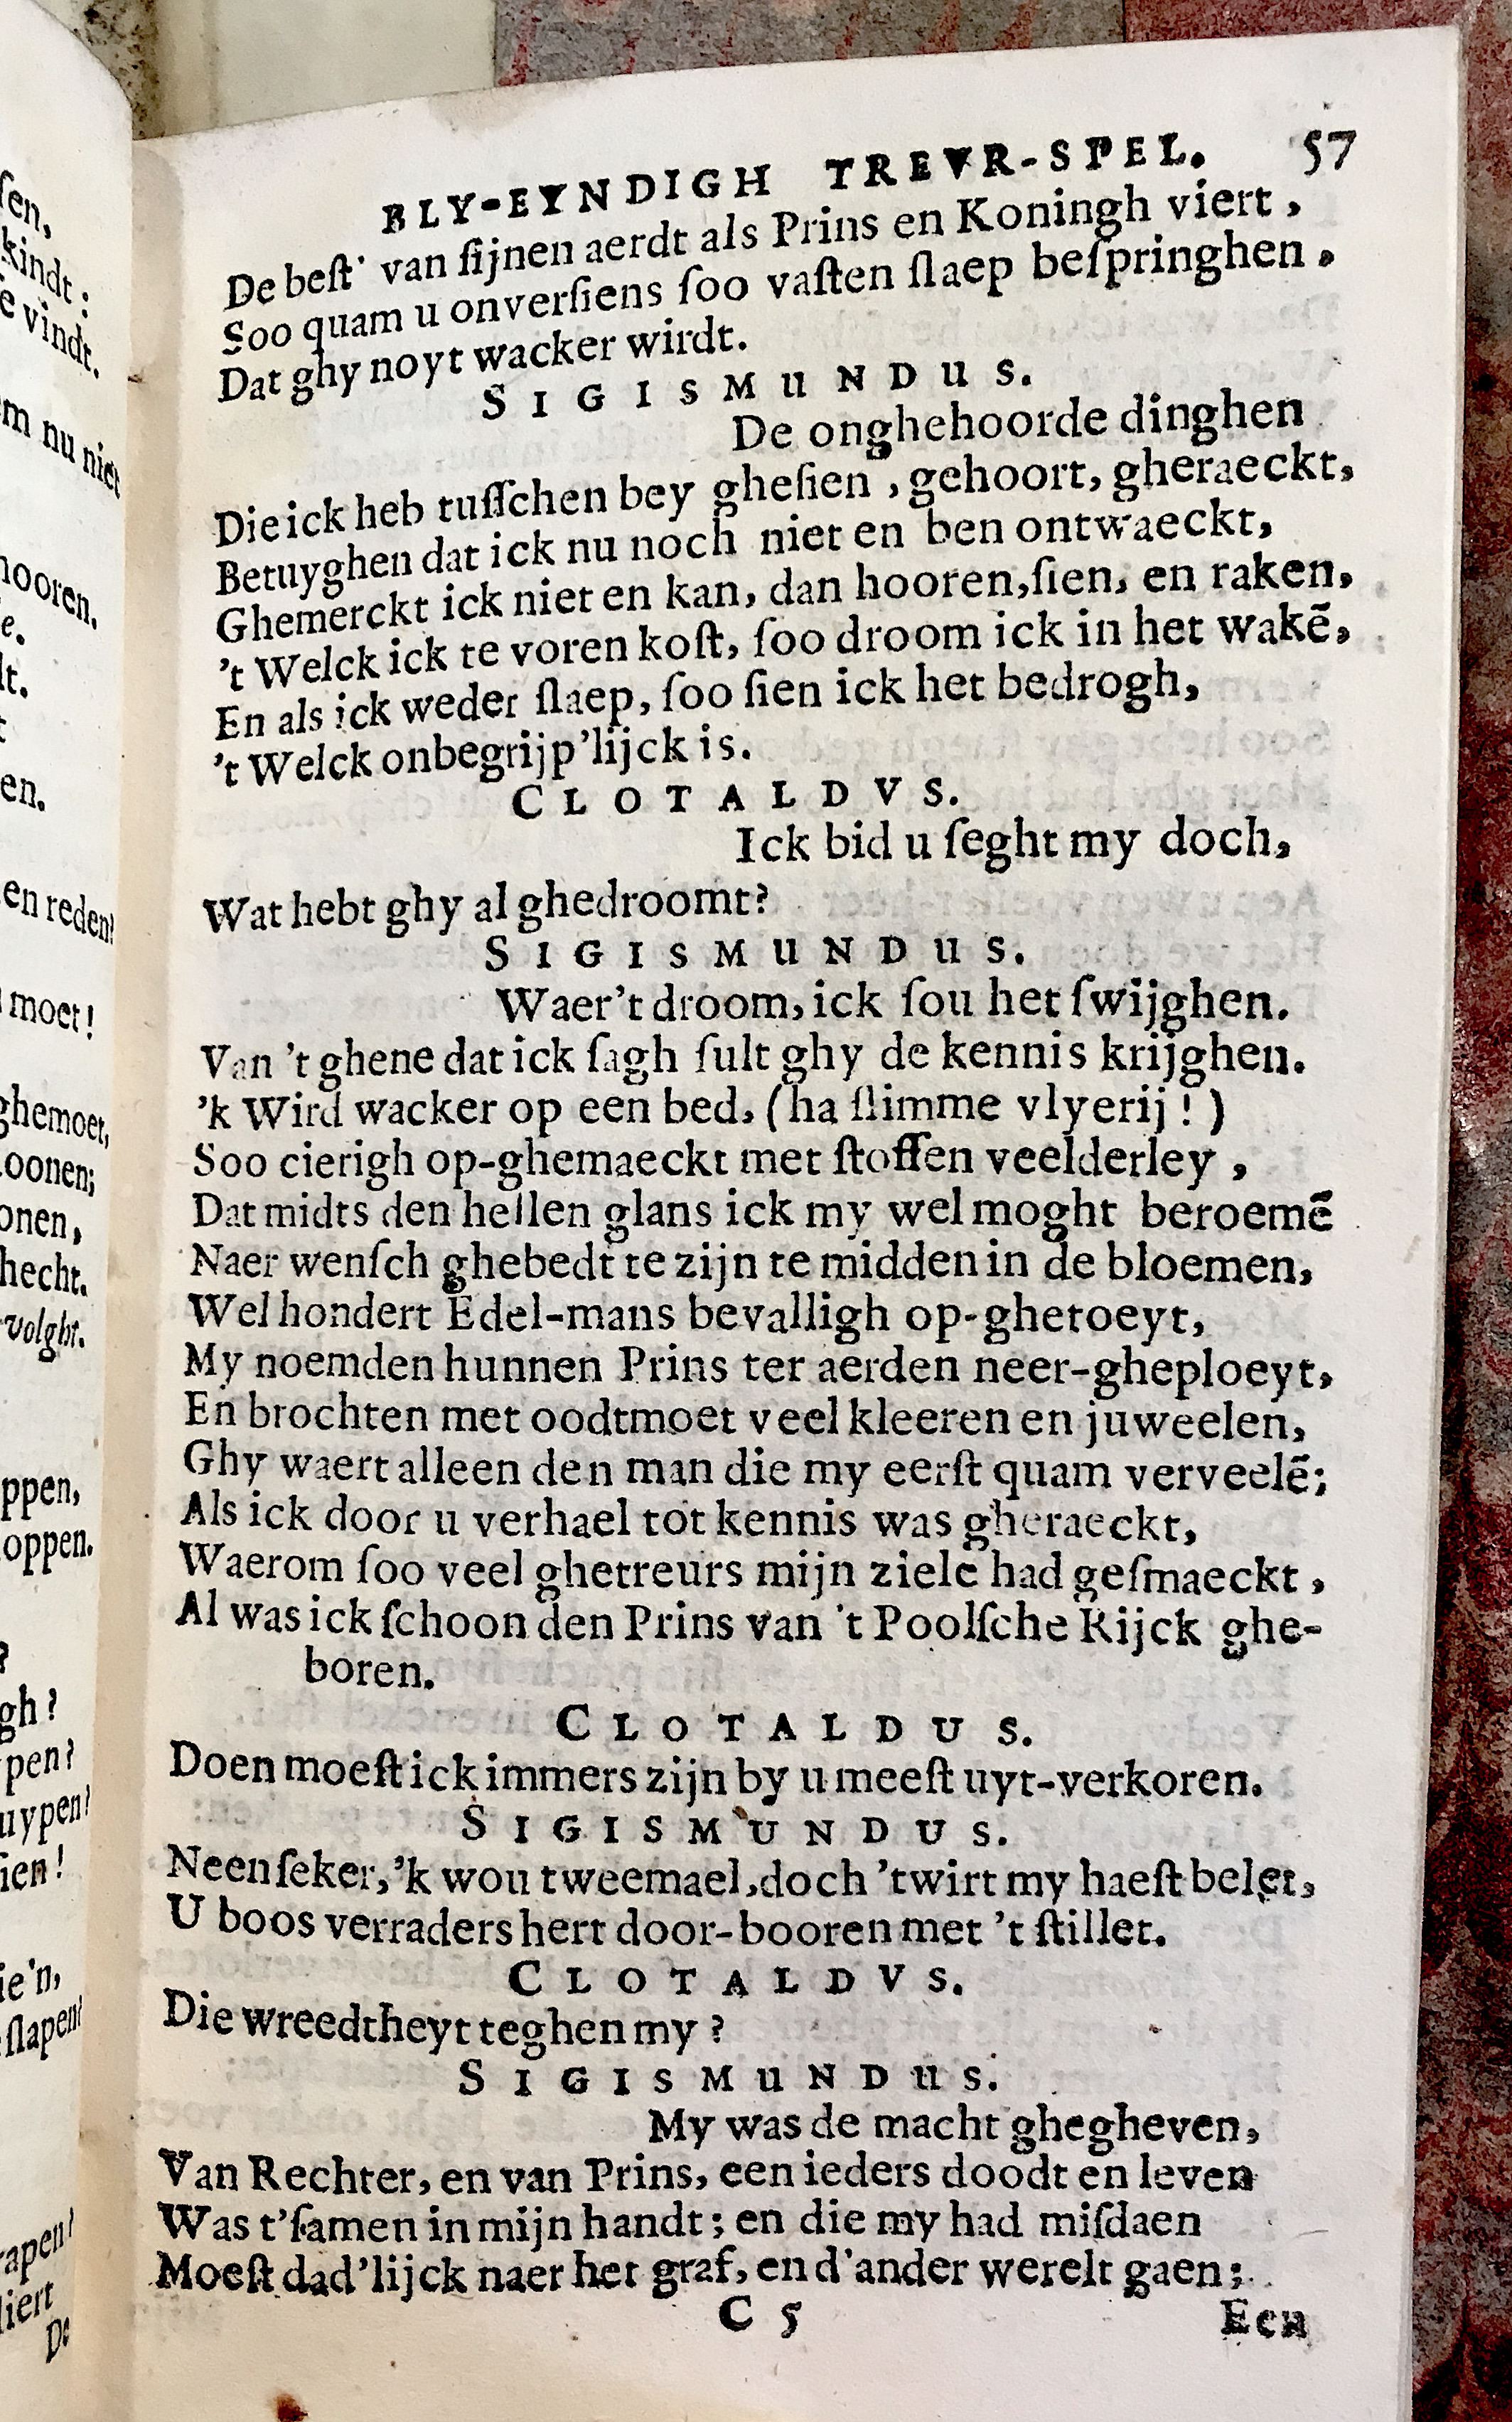 BLY-EYNDIGH TREVR-SPEL. 57
De beſt' van ſijnen aerdt als Prins en Koningh viert,
Soo quam u onverſiens ſoo vaſten ſlaep beſpringhen,
Dat ghy noyt wacker wirdt.
SIGISMUNDUS.
De onghehoorde dinghen
Die ick heb tuſſchen bey gheſien, gehoort, gheraeckt,
Betuyghen dat ick nu noch niet en ben ontwaeckt,
Ghemerckt ick niet en kan, dan hooren, ſien, en raken,
't Welck ick te voren koſt, ſoo droom ick in het wakē,
En als ick weder ſlaep, ſoo ſien ick het bedrogh,
't Welck onbegrijp'lijck is.
CLOTALDVS.
Ick bid u ſeght my doch,
Wat hebt ghy al ghedroomt?
SIGISMUNDUS.
Waer't droom, ick ſou het ſwijghen.
Van 't ghene dat ick ſagh ſult ghy de kennis krijghen.
'k Wird wacker op een bed, (ha ſlimme vlyerij!)
Soo cierigh op-ghemaeckt met ſtoffen veelderley,
Dat midts den hellen glans ick my wel moght beroemē
Naer wenſch ghebedt te zijn te midden in de bloemen,
Wel hondert Edel-mans bevalligh op-ghetoeyt,
My noemden hunnen Prins ter aerden neer-gheploeyt,
En brochten met oodtmoet veel kleeren en juweelen,
Ghy waert alleen den man die my eerſt quam verveelē;
Als ick door u verhael tot kennis was gheraeckt,
Waerom ſoo veel ghetreurs mijn ziele had geſmaeckt,
Al was ick ſchoon den Prins van 't Poolſche Rijck ghe-
boren.
CLOTALDUS.
Doen moeſt ick immers zijn by u meeſt uyt-verkoren.
SIGISMUNDUS.
Neen ſeker, 'k wou tweemael, doch 't wirt my haeſt belet,
U boos verraders hert door-booren met 't ſtillet.
CLOTALDVS.
Die wreedtheyt teghen my?
SIGISMUNDUS.
My was de macht ghegheven,
Van Rechter, en van Prins, een ieders doodt en leven
Was t'ſamen in mijn handt; en die my had miſdaen
Moeſt dad'lijck naer het graf, en d'ander werelt gaen;
C 5 Een